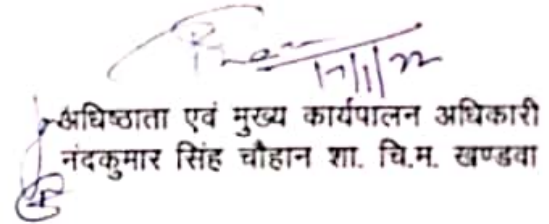 17/1/22
अधिष्ठाता एवं मुख्य कार्यपालन अधिकारी
नंदकुमार सिंह चौहान शा. चि.म. खण्डवा